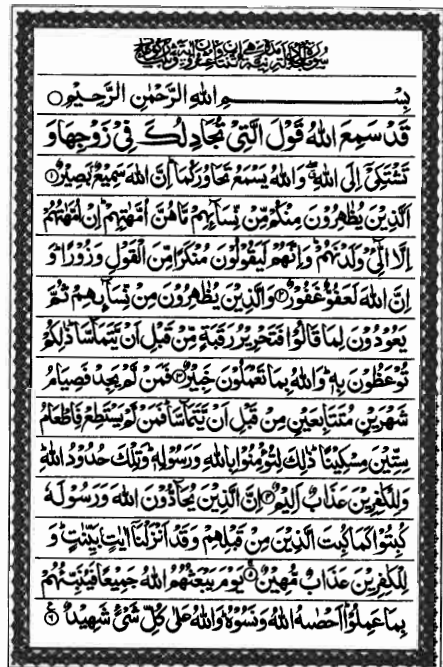 بِسْمِ اللهِ الرَّحْمٰنِ الرَّحِيْمِ ○
قَدْ سَمِعَ اللهُ قَوْلَ الَّتِيْ تُجَادِلُكَ فِيْ زَوْجِهَا وَ
تَشْتَكِيْٓ اِلَى اللهِ ۖ وَاللهُ يَسْمَعُ تَحَاوُرَكُمَا ؕ اِنَّ اللهَ سَمِيْعٌۢ بَصِيْرٌ ۝۱
اَلَّذِيْنَ يُظٰهِرُوْنَ مِنْكُمْ مِّنْ نِّسَآئِهِمْ مَّا هُنَّ اُمَّهٰتِهِمْ ؕ اِنْ اُمَّهٰتُهُمْ
اِلَّا الّٰٓـِٔيْ وَلَدْنَهُمْ ؕ وَاِنَّهُمْ لَيَقُوْلُوْنَ مُنْكَرًا مِّنَ الْقَوْلِ وَزُوْرًا ؕ وَ
اِنَّ اللهَ لَعَفُوٌّ غَفُوْرٌ ۝۲ وَالَّذِيْنَ يُظٰهِرُوْنَ مِنْ نِّسَآئِهِمْ ثُمَّ
يَعُوْدُوْنَ لِمَا قَالُوْا فَتَحْرِيْرُ رَقَبَةٍ مِّنْ قَبْلِ اَنْ يَّتَمَآسَّا ؕ ذٰلِكُمْ
تُوْعَظُوْنَ بِهٖ ؕ وَاللهُ بِمَا تَعْمَلُوْنَ خَبِيْرٌ ۝۳ فَمَنْ لَّمْ يَجِدْ فَصِيَامُ
شَهْرَيْنِ مُتَتَابِعَيْنِ مِنْ قَبْلِ اَنْ يَّتَمَآسَّا ۚ فَمَنْ لَّمْ يَسْتَطِعْ فَاِطْعَامُ
سِتِّيْنَ مِسْكِيْنًا ؕ ذٰلِكَ لِتُؤْمِنُوْا بِاللهِ وَرَسُوْلِهٖ ؕ وَتِلْكَ حُدُوْدُ اللهِ ؕ
وَلِلْكٰفِرِيْنَ عَذَابٌ اَلِيْمٌ ۝۴ اِنَّ الَّذِيْنَ يُحَآدُّوْنَ اللهَ وَرَسُوْلَهٗ
كُبِتُوْا كَمَا كُبِتَ الَّذِيْنَ مِنْ قَبْلِهِمْ وَقَدْ اَنْزَلْنَآ اٰيٰتٍۭ بَيِّنٰتٍ ؕ وَ
لِلْكٰفِرِيْنَ عَذَابٌ مُّهِيْنٌ ۝۵ يَوْمَ يَبْعَثُهُمُ اللهُ جَمِيْعًا فَيُنَبِّئُهُمْ
بِمَا عَمِلُوْا ؕ اَحْصٰىهُ اللهُ وَنَسُوْهُ ؕ وَاللهُ عَلٰى كُلِّ شَيْءٍ شَهِيْدٌ ۝۶